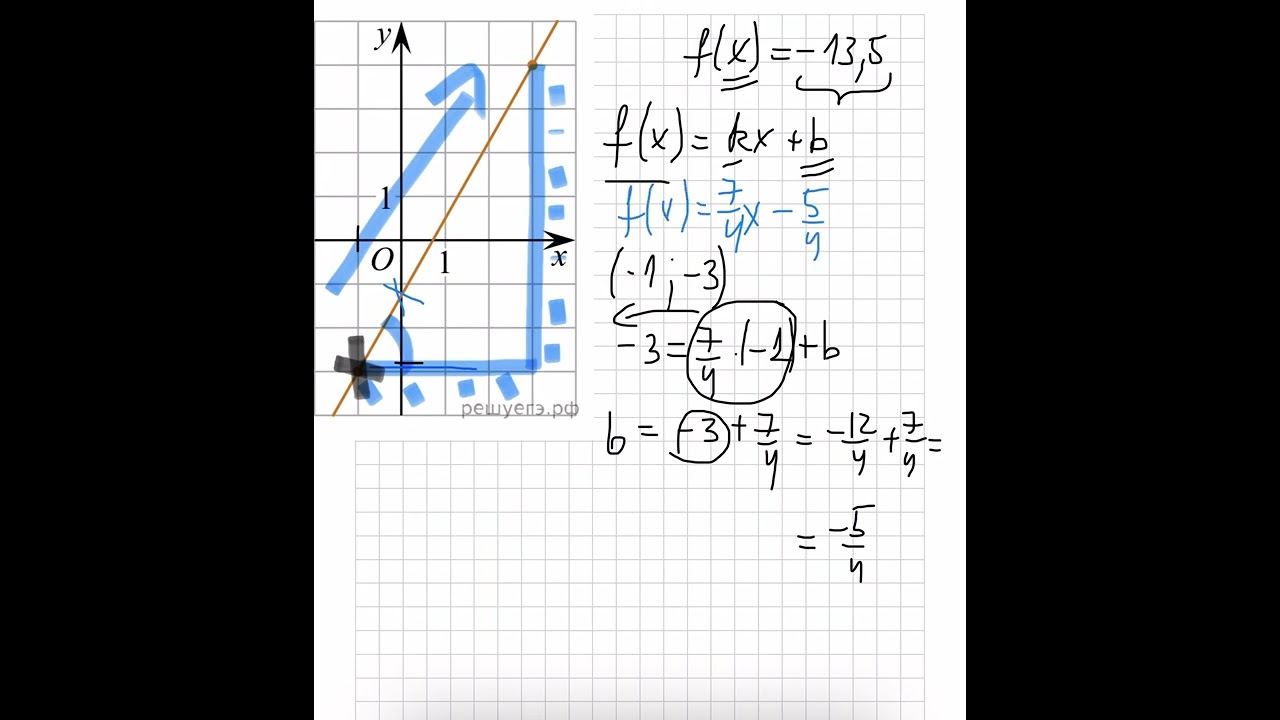 y
1
O
1
x
решуегэ.рф
f(x) = -13,5
f(x) = kx + b
f(x) = 7/4 x - 5/4
(-1; -3)
-3 = 7/4 · (-1) + b
b = -3 + 7/4 = -12/4 + 7/4 =
= -5/4